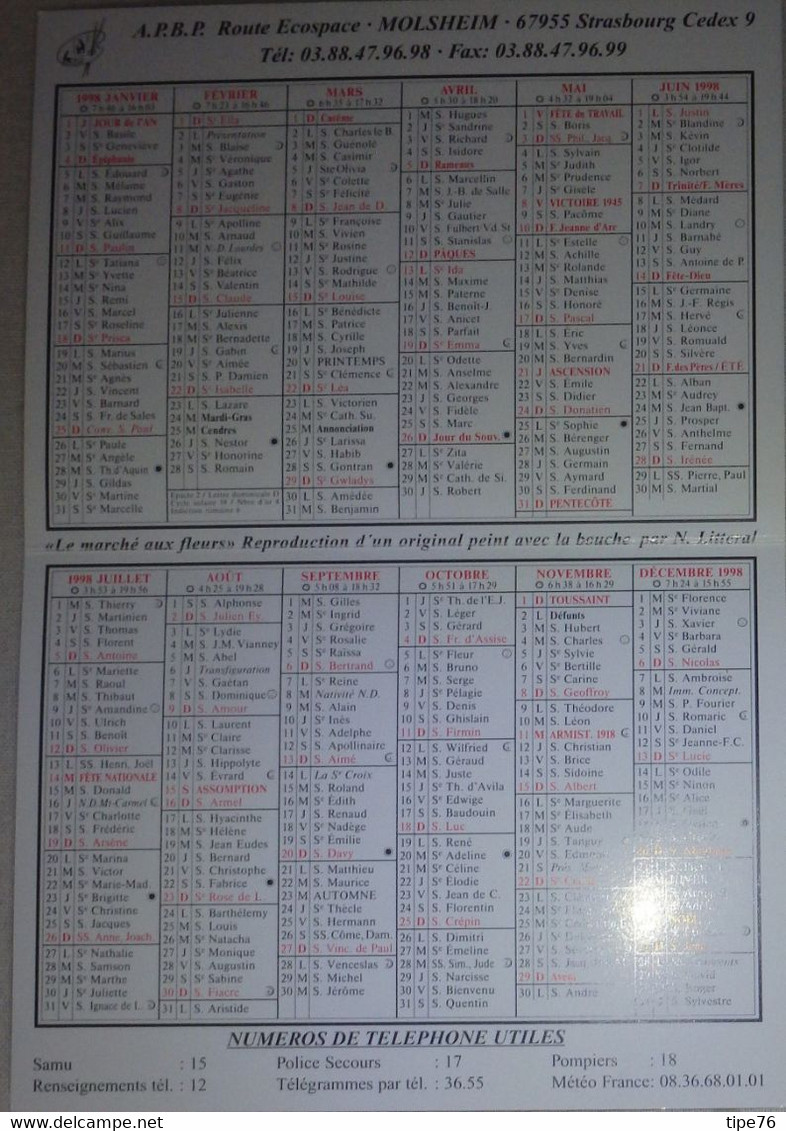 A.P.B.P. Route Ecospace · MOLSHEIM · 67955 Strasbourg Cedex 9
Tél: 03.88.47.96.98 · Fax: 03.88.47.96.99
1998 JANVIER
7 h 46 à 16 h 03
1 J JOUR de l'AN
2 V S. Basile
3 S Sᵉ Geneviève
4 D Épiphanie
5 L S. Édouard
6 M S. Mélaine
7 M S. Raymond
8 J S. Lucien
9 V Sᵉ Alix
10 S S. Guillaume
11 D S. Paulin
12 L Sᵉ Tatiana
13 M Sᵉ Yvette
14 M Sᵉ Nina
15 J S. Remi
16 V S. Marcel
17 S Sᵉ Roseline
18 D Sᵉ Prisca
19 L S. Marius
20 M S. Sébastien
21 M Sᵉ Agnès
22 J S. Vincent
23 V S. Barnard
24 S S. Fr. de Sales
25 D Conv. S. Paul
26 L Sᵉ Paule
27 M Sᵉ Angèle
28 M S. Th d'Aquin
29 J S. Gildas
30 V Sᵉ Martine
31 S Sᵉ Marcelle
FÉVRIER
7 h 23 à 16 h 46
1 D Sᵉ Ella
2 L Présentation
3 M S. Blaise
4 M Sᵉ Véronique
5 J Sᵉ Agathe
6 V S. Gaston
7 S Sᵉ Eugénie
8 D Sᵉ Jacqueline
9 L Sᵉ Apolline
10 M S. Arnaud
11 M N-D. Lourdes
12 J S. Félix
13 V Sᵉ Béatrice
14 S S. Valentin
15 D S. Claude
16 L Sᵉ Julienne
17 M S. Alexis
18 M Sᵉ Bernadette
19 J S. Gabin
20 V Sᵉ Aimée
21 S S. P. Damien
22 D Sᵉ Isabelle
23 L S. Lazare
24 M Mardi-Gras
25 M Cendres
26 J S. Nestor
27 V Sᵉ Honorine
28 S S. Romain
Epacte 2 / Lettre dominicale D
Cycle solaire 19 / Nbre d'or 4
Indiction romaine 6
MARS
6 h 35 à 17 h 32
1 D Carême
2 L S. Charles le B.
3 M S. Guénolé
4 M S. Casimir
5 J Sᵗᵉ Olivia
6 V Sᵉ Colette
7 S Sᵉ Félicité
8 D S. Jean de D.
9 L Sᵉ Françoise
10 M S. Vivien
11 M Sᵉ Rosine
12 J Sᵉ Justine
13 V S. Rodrigue
14 S Sᵉ Mathilde
15 D Sᵉ Louise
16 L Sᵉ Bénédicte
17 M S. Patrice
18 M S. Cyrille
19 J S. Joseph
20 V PRINTEMPS
21 S Sᵉ Clémence
22 D Sᵉ Léa
23 L S. Victorien
24 M Sᵉ Cath. Su.
25 M Annonciation
26 J Sᵉ Larissa
27 V S. Habib
28 S S. Gontran
29 D Sᵉ Gwladys
30 L S. Amédée
31 M S. Benjamin
AVRIL
5 h 30 à 18 h 20
1 M S. Hugues
2 J Sᵉ Sandrine
3 V S. Richard
4 S S. Isidore
5 D Rameaux
6 L S. Marcellin
7 M S. J.-B. de Salle
8 M Sᵉ Julie
9 J S. Gautier
10 V S. Fulbert Vd. St
11 S S. Stanislas
12 D PÂQUES
13 L Sᵉ Ida
14 M S. Maxime
15 M S. Paterne
16 J S. Benoît-J.
17 V S. Anicet
18 S S. Parfait
19 D Sᵉ Emma
20 L Sᵉ Odette
21 M S. Anselme
22 M S. Alexandre
23 J S. Georges
24 V S. Fidèle
25 S S. Marc
26 D Jour du Souv.
27 L Sᵉ Zita
28 M Sᵉ Valérie
29 M Sᵉ Cath. de Si.
30 J S. Robert
MAI
4 h 32 à 19 h 04
1 V FÊTE du TRAVAIL
2 S S. Boris
3 D SS. Phil., Jacq.
4 L S. Sylvain
5 M Sᵉ Judith
6 M Sᵉ Prudence
7 J Sᵉ Gisèle
8 V VICTOIRE 1945
9 S S. Pacôme
10 D F. Jeanne d'Arc
11 L Sᵉ Estelle
12 M S. Achille
13 M Sᵉ Rolande
14 J S. Matthias
15 V Sᵉ Denise
16 S S. Honoré
17 D S. Pascal
18 L S. Éric
19 M S. Yves
20 M S. Bernardin
21 J ASCENSION
22 V S. Émile
23 S S. Didier
24 D S. Donatien
25 L Sᵉ Sophie
26 M S. Bérenger
27 M S. Augustin
28 J S. Germain
29 V S. Aymard
30 S S. Ferdinand
31 D PENTECÔTE
JUIN 1998
3 h 54 à 19 h 44
1 L S. Justin
2 M Sᵉ Blandine
3 M S. Kévin
4 J Sᵉ Clotilde
5 V S. Igor
6 S S. Norbert
7 D Trinité/F. Mères
8 L S. Médard
9 M Sᵉ Diane
10 M S. Landry
11 J S. Barnabé
12 V S. Guy
13 S S. Antoine de P.
14 D Fête-Dieu
15 L Sᵉ Germaine
16 M S. J.-F. Régis
17 M S. Hervé
18 J S. Léonce
19 V S. Romuald
20 S S. Silvère
21 D F. des Pères / ÉTÉ
22 L S. Alban
23 M Sᵉ Audrey
24 M S. Jean Bapt.
25 J S. Prosper
26 V S. Anthelme
27 S S. Fernand
28 D S. Irénée
29 L SS. Pierre, Paul
30 M S. Martial
«Le marché aux fleurs» Reproduction d'un original peint avec la bouche par N. Littoral
1998 JUILLET
3 h 53 à 19 h 56
1 M S. Thierry
2 J S. Martinien
3 V S. Thomas
4 S S. Florent
5 D S. Antoine
6 L Sᵉ Mariette
7 M S. Raoul
8 M S. Thibaut
9 J Sᵉ Amandine
10 V S. Ulrich
11 S S. Benoît
12 D S. Olivier
13 L SS. Henri, Joël
14 M FÊTE NATIONALE
15 M S. Donald
16 J N.D. Mt-Carmel
17 V Sᵉ Charlotte
18 S S. Frédéric
19 D S. Arsène
20 L Sᵉ Marina
21 M S. Victor
22 M Sᵉ Marie-Mad.
23 J Sᵉ Brigitte
24 V Sᵉ Christine
25 S S. Jacques
26 D SS. Anne, Joach.
27 L Sᵉ Nathalie
28 M S. Samson
29 M Sᵉ Marthe
30 J Sᵉ Juliette
31 V S. Ignace de L.
AOÛT
4 h 25 à 19 h 28
1 S S. Alphonse
2 D S. Julien Ey.
3 L Sᵉ Lydie
4 M S. J.M. Vianney
5 M S. Abel
6 J Transfiguration
7 V S. Gaëtan
8 S S. Dominique
9 D S. Amour
10 L S. Laurent
11 M Sᵉ Claire
12 M Sᵉ Clarisse
13 J S. Hippolyte
14 V S. Évrard
15 S ASSOMPTION
16 D S. Armel
17 L S. Hyacinthe
18 M Sᵉ Hélène
19 M S. Jean Eudes
20 J S. Bernard
21 V S. Christophe
22 S S. Fabrice
23 D Sᵉ Rose de L.
24 L S. Barthélemy
25 M S. Louis
26 M Sᵉ Natacha
27 J Sᵉ Monique
28 V S. Augustin
29 S Sᵉ Sabine
30 D S. Fiacre
31 L S. Aristide
SEPTEMBRE
5 h 08 à 18 h 32
1 M S. Gilles
2 M Sᵉ Ingrid
3 J S. Grégoire
4 V Sᵉ Rosalie
5 S Sᵉ Raïssa
6 D S. Bertrand
7 L Sᵉ Reine
8 M Nativité N.D.
9 M S. Alain
10 J Sᵉ Inès
11 V S. Adelphe
12 S S. Apollinaire
13 D S. Aimé
14 L La Sᵉ Croix
15 M S. Roland
16 M Sᵉ Édith
17 J S. Renaud
18 V Sᵉ Nadège
19 S Sᵉ Émilie
20 D S. Davy
21 L S. Matthieu
22 M S. Maurice
23 M AUTOMNE
24 J Sᵉ Thècle
25 V S. Hermann
26 S SS. Côme, Dam.
27 D S. Vinc. de Paul
28 L S. Venceslas
29 M S. Michel
30 M S. Jérôme
OCTOBRE
5 h 51 à 17 h 29
1 J Sᵉ Th. de l'E.J.
2 V S. Léger
3 S S. Gérard
4 D S. Fr. d'Assise
5 L Sᵉ Fleur
6 M S. Bruno
7 M S. Serge
8 J Sᵉ Pélagie
9 V S. Denis
10 S S. Ghislain
11 D S. Firmin
12 L S. Wilfried
13 M S. Géraud
14 M S. Juste
15 J Sᵉ Th. d'Avila
16 V Sᵉ Edwige
17 S S. Baudouin
18 D S. Luc
19 L S. René
20 M Sᵉ Adeline
21 M Sᵉ Céline
22 J Sᵉ Élodie
23 V S. Jean de C.
24 S S. Florentin
25 D S. Crépin
26 L S. Dimitri
27 M Sᵉ Émeline
28 M SS. Sim., Jude
29 J S. Narcisse
30 V Sᵉ Bienvenu
31 S S. Quentin
NOVEMBRE
6 h 38 à 16 h 29
1 D TOUSSAINT
2 L Défunts
3 M S. Hubert
4 M S. Charles
5 J Sᵉ Sylvie
6 V Sᵉ Bertille
7 S Sᵉ Carine
8 D S. Geoffroy
9 L S. Théodore
10 M S. Léon
11 M ARMIST. 1918
12 J S. Christian
13 V S. Brice
14 S S. Sidoine
15 D S. Albert
16 L Sᵉ Marguerite
17 M Sᵉ Élisabeth
18 M Sᵉ Aude
19 J S. Tanguy
20 V S.
21 S
22 D Sᵉ
23 L S.
24 M Sᵉ
25 M Sᵉ
26 J Sᵉ
27 V S.
28 S S.
29 D Avent
30 L S. André
DÉCEMBRE 1998
7 h 24 à 15 h 55
1 M Sᵉ Florence
2 M Sᵉ Viviane
3 J S. Xavier
4 V Sᵉ Barbara
5 S S. Gérald
6 D S. Nicolas
7 L S. Ambroise
8 M Imm. Concept.
9 M S. P. Fourier
10 J S. Romaric
11 V S. Daniel
12 S Sᵉ Jeanne-F.C.
13 D Sᵉ Lucie
14 L Sᵉ Odile
15 M Sᵉ Ninon
16 M Sᵉ Alice
S. Roger
31 J S. Sylvestre
NUMEROS DE TELEPHONE UTILES
Samu : 15 Police Secours : 17 Pompiers : 18
Renseignements tél. : 12 Télégrammes par tél. : 36.55 Météo France: 08.36.68.01.01
tipe76